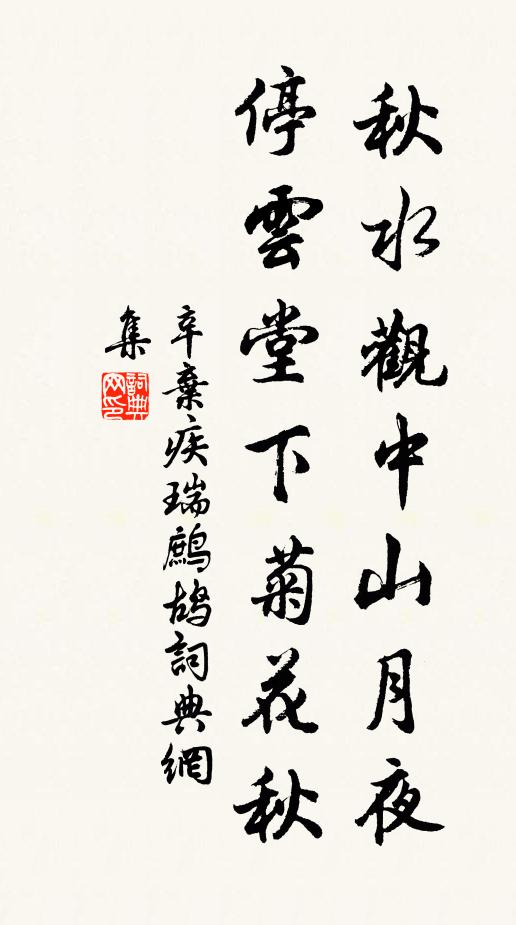 秋水觀中山月夜
停雲堂下菊花秋
辛棄疾瑞鷓鴣詞典網
集
詞典网印